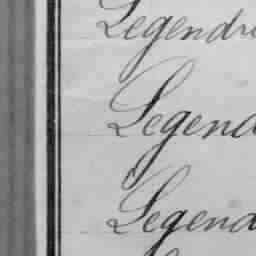 Legendr
Legend
Legend